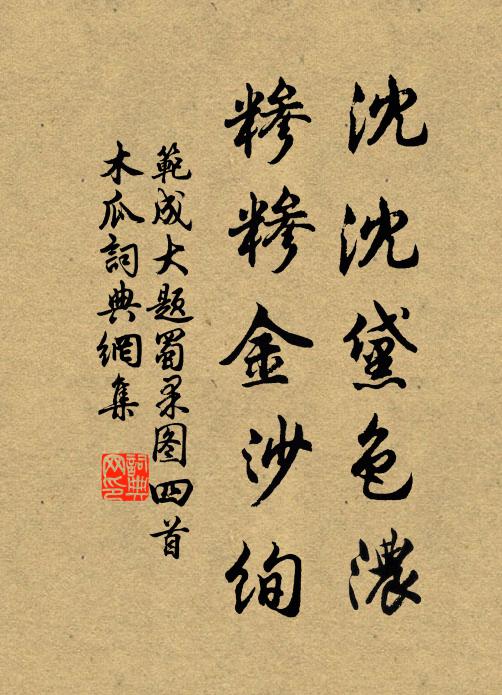 沈沈黛色濃
糝糝金沙絢
範成大题蜀果图四首
木瓜詞典網集
詞典网印